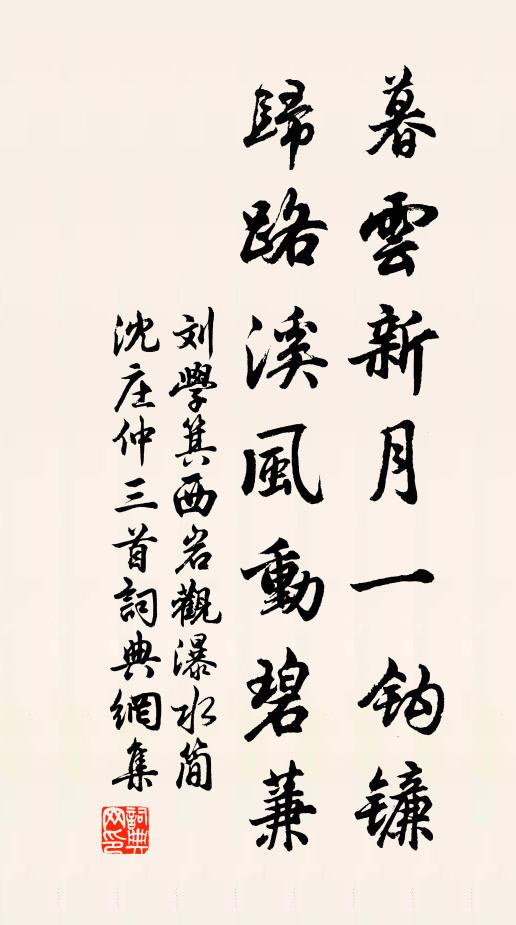 暮雲新月一鈎镰
歸路溪風動碧蒹
刘學箕西岩觀瀑水简
沈庄仲三首詞典網集
詞典網印